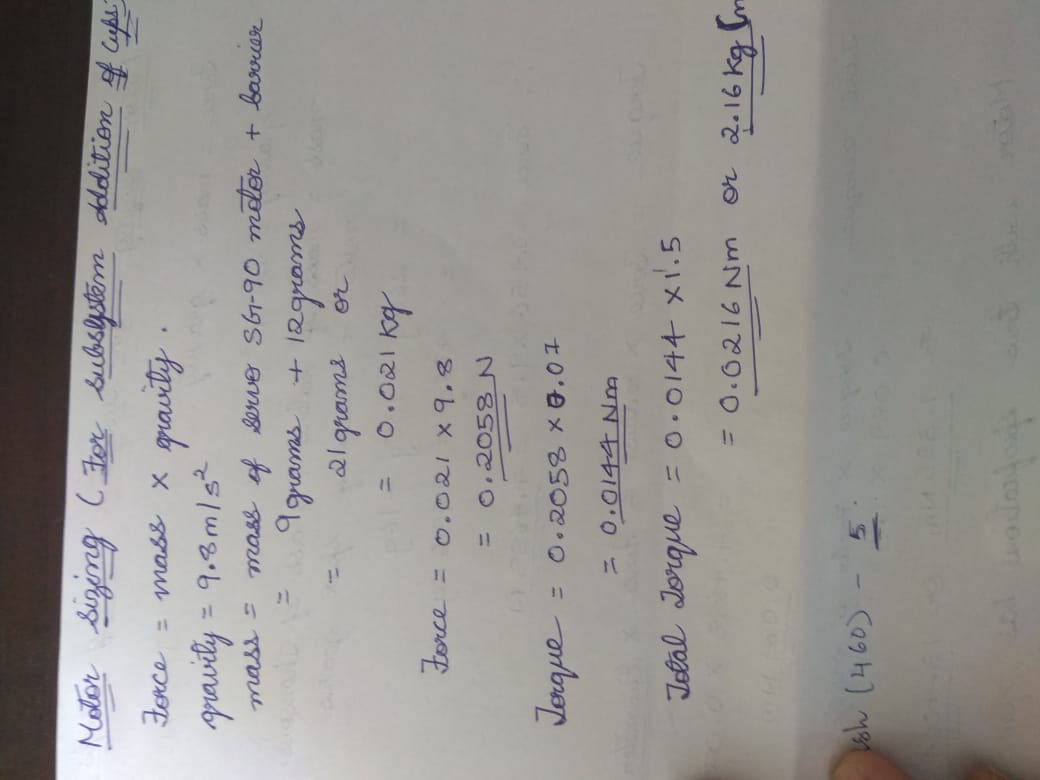 Motor sizing (For subsystem Addition of Cups
Force = mass x gravity.
gravity = 9.8 m/s²
mass = mass of servo SG-90 motor + barrier
= 9grams + 12grams
= 21grams or
= 0.021 kg
Force = 0.021 x 9.8
= 0.2058 N
Torque = 0.2058 x 0.07
= 0.0144 Nm
Total Torque = 0.0144 x 1.5
= 0.0216 Nm or 2.16 kg
(460) - 5